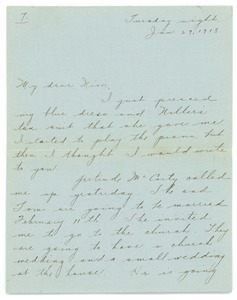 I
Tuesday night
Jan 29, 1918
My dear Nina,
I just pressed
my blue dress and Miller's
tan suit that she gave me
I started to play the piano but
then I thought I would write
to you
Gertrude McCarty called
me up yesterday She and
Tom are going to be married
February 11th She invited
me to go to the church They
are going to have a church
wedding and a small wedding
at the house. He is going